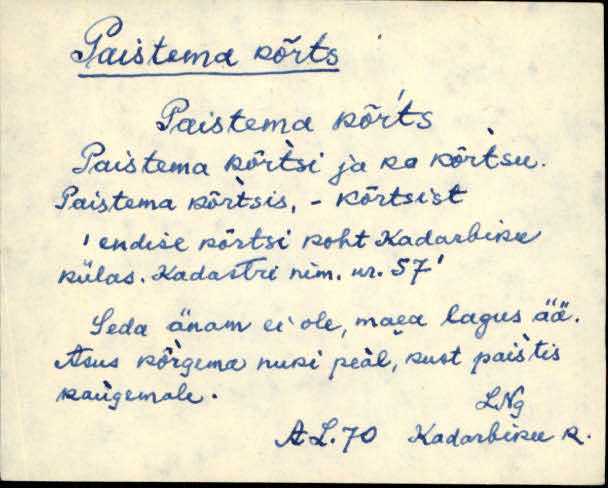 Paistema kõrts
Paistema kõŕts
Paistema kõr̀tsi ja ka kõrt̀su.
Paistema kõr̀tsis, - kõrtsist
'endise kõrtsi koht Kadarbiku
külas. Kadastri nim. nr. 57'
Seda änam ei ole, maea lagus ää.
Asus kõr̀gema nuki peäl, kust pais̀tis
kaùgemale.
LNg
AL. 70 Kadarbiku k.